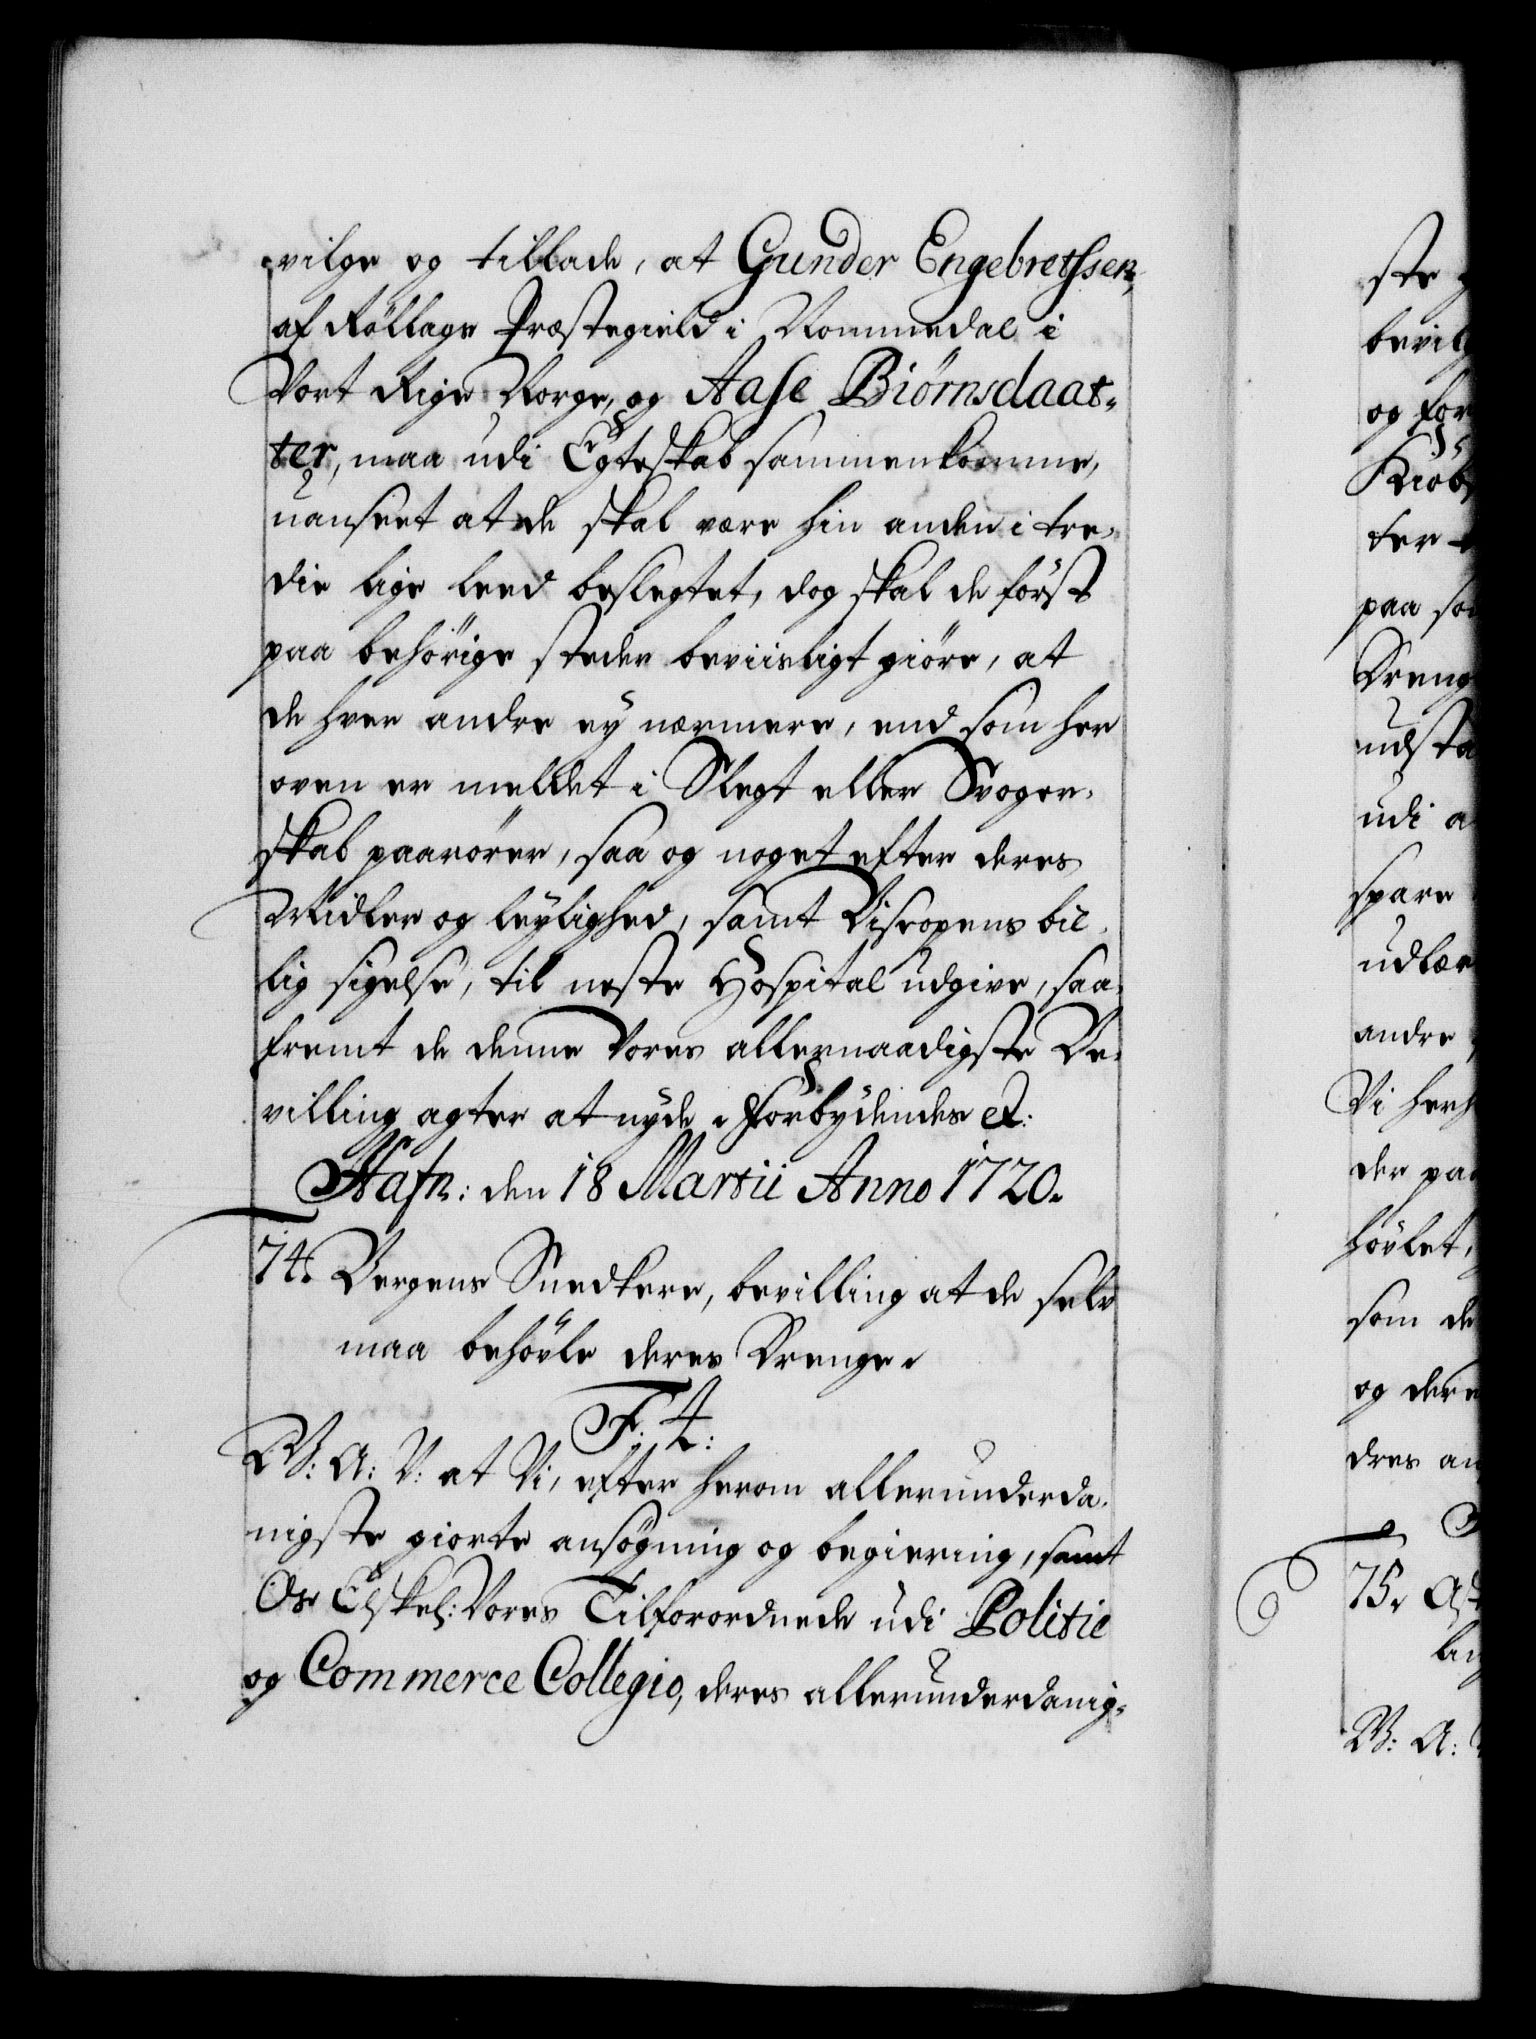 vilge og tillade, at Gunder Engebretssen,
af Rollags Præstegield i Nommedal i
Vort Rige Norge, og Aase Biørnsdaat-
ter, maa udi Egteskab sammenkomme,
uanseet at de skal være hin anden i tre-
die lige leed beslegtet, dog skal de först
paa behörige steder beviisligt giöre, at
de hver andre ey nærmere, end som her
oven er meldet i Slegt eller Svoger-
skab paarörer, saa og noget efter deres
Midler og leylighed, samt Biscopens bil-
lig sigelse, til neste Hospital udgive, saa-
fremt de denne Vores allernaadigste Be-
villing agter at nyde. Forbydendes etc:
Hafn: den 18 Martii Anno 1720.
74. Bergens Snedkere, bevilling at de selv
maa behövle deres Drenge.
F: 4:
G: A: V: at Vi, efter herom allerunderda-
nigste giorte ansögning og begiering, samt
Os Elskel: Vores Tilforordnede udi Politie
og Commerce Collegio, deres allerunderdanig-
ste
bevilg
og for
Kiöb
ter
paa so
Dreng
udsta
udi a
spare
udlær
andre
Vi her
der paa
hövlet,
som de
og dere
dres an
75.
G: A: